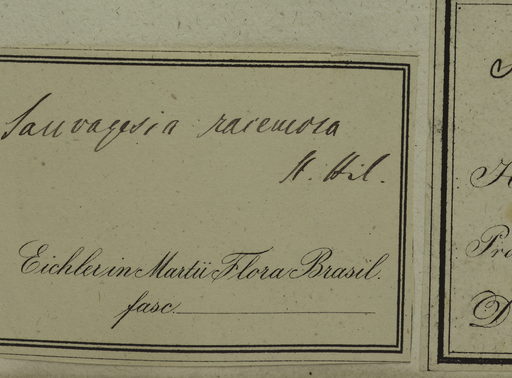 Sauvagesia racemosa
St. Hil.
Eichler in Martii Flora Brasil.
fasc.